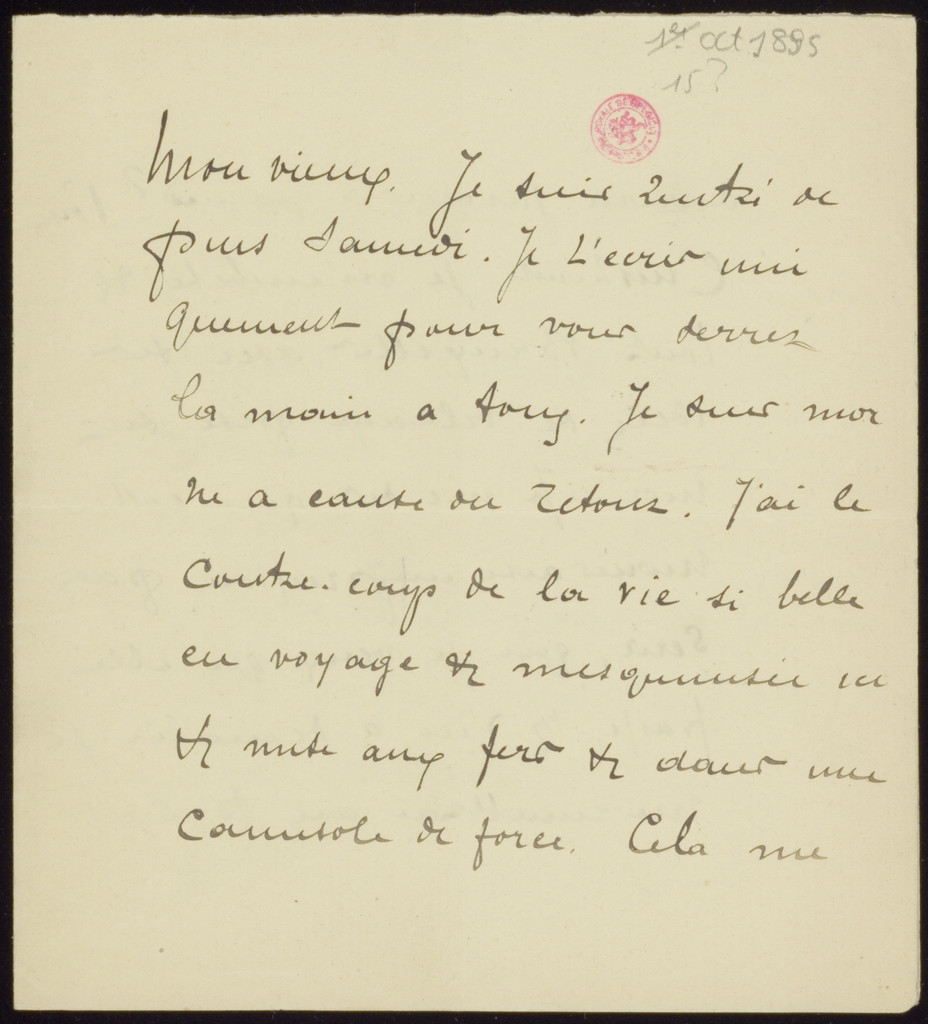 1er oct 1895
15?
Mon vieux. Je suis rentré de
puis Samedi. Je t'ecris uni
quement pour vous serrer
la main a tous. Je suis mor
ne a cause du retour. J'ai le
Contre-coup de la vie si belle
en voyage & mesquinisée ici
& mise aux fers & dans une
Camisole de force. Cela me